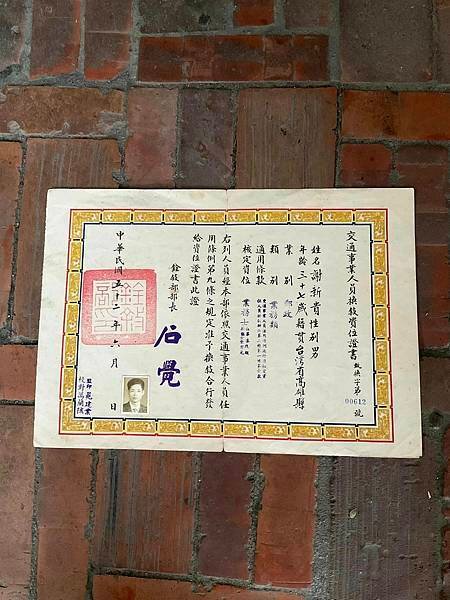 交通事業人員換敘資位證書
敘換字第00612號
姓名 謝新貴 性別 男
年齡 三十七歲 籍貫 台灣省高雄縣
業別 郵政
類別 業務類
適用條款
核定資位 業務士
右列人員經本部依照交通事業人員任
用條例第九條之規定准予換敘合行發
給資位證書此證
銓敘部部長 石覺
中華民國五十二年六月 日
監印
校對